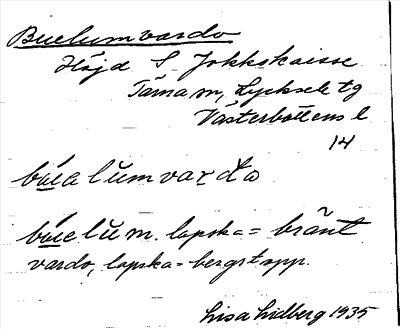 Buelumvardo
Höjd S Jokkskaisse
Tärna sn, Lycksele tg
Västerbottens l
14
búe̯alŭmvarďo
búelŭm. lapska = bränt
vardo, lapska = bergstopp.
Lisa Lidberg 1935